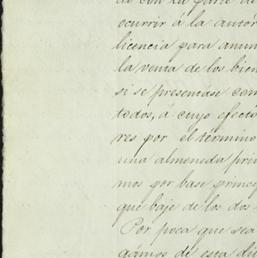 de con la parte de
ocurrir á la autor
licencia para anun
la venta de los bien
si se presentase com
todos, á cuyo efecto
res por el término
una almoneda priv
mos por base princi
que baje de los dos
Por poca que sea
gámos de esta di